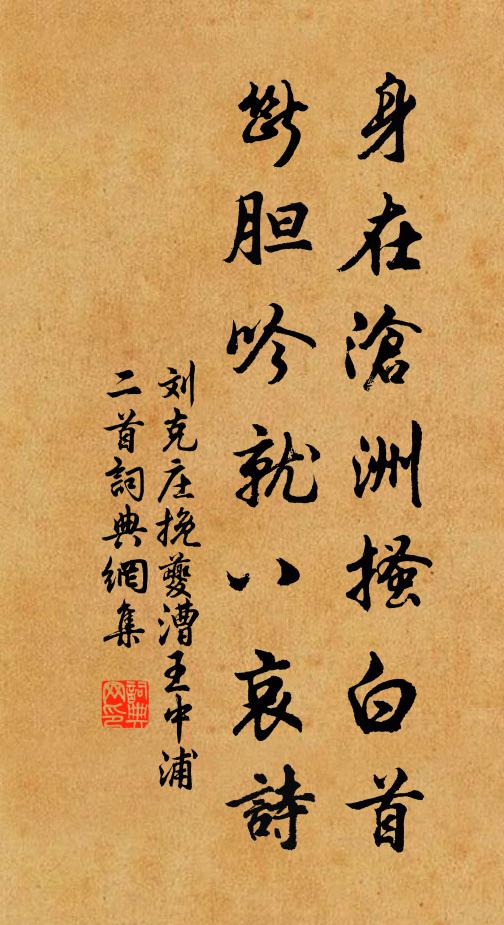 身在滄洲搔白首
斷胆吟就八哀詩
刘克庄挽夔漕王中浦
二首詞典網集
詞典
网印